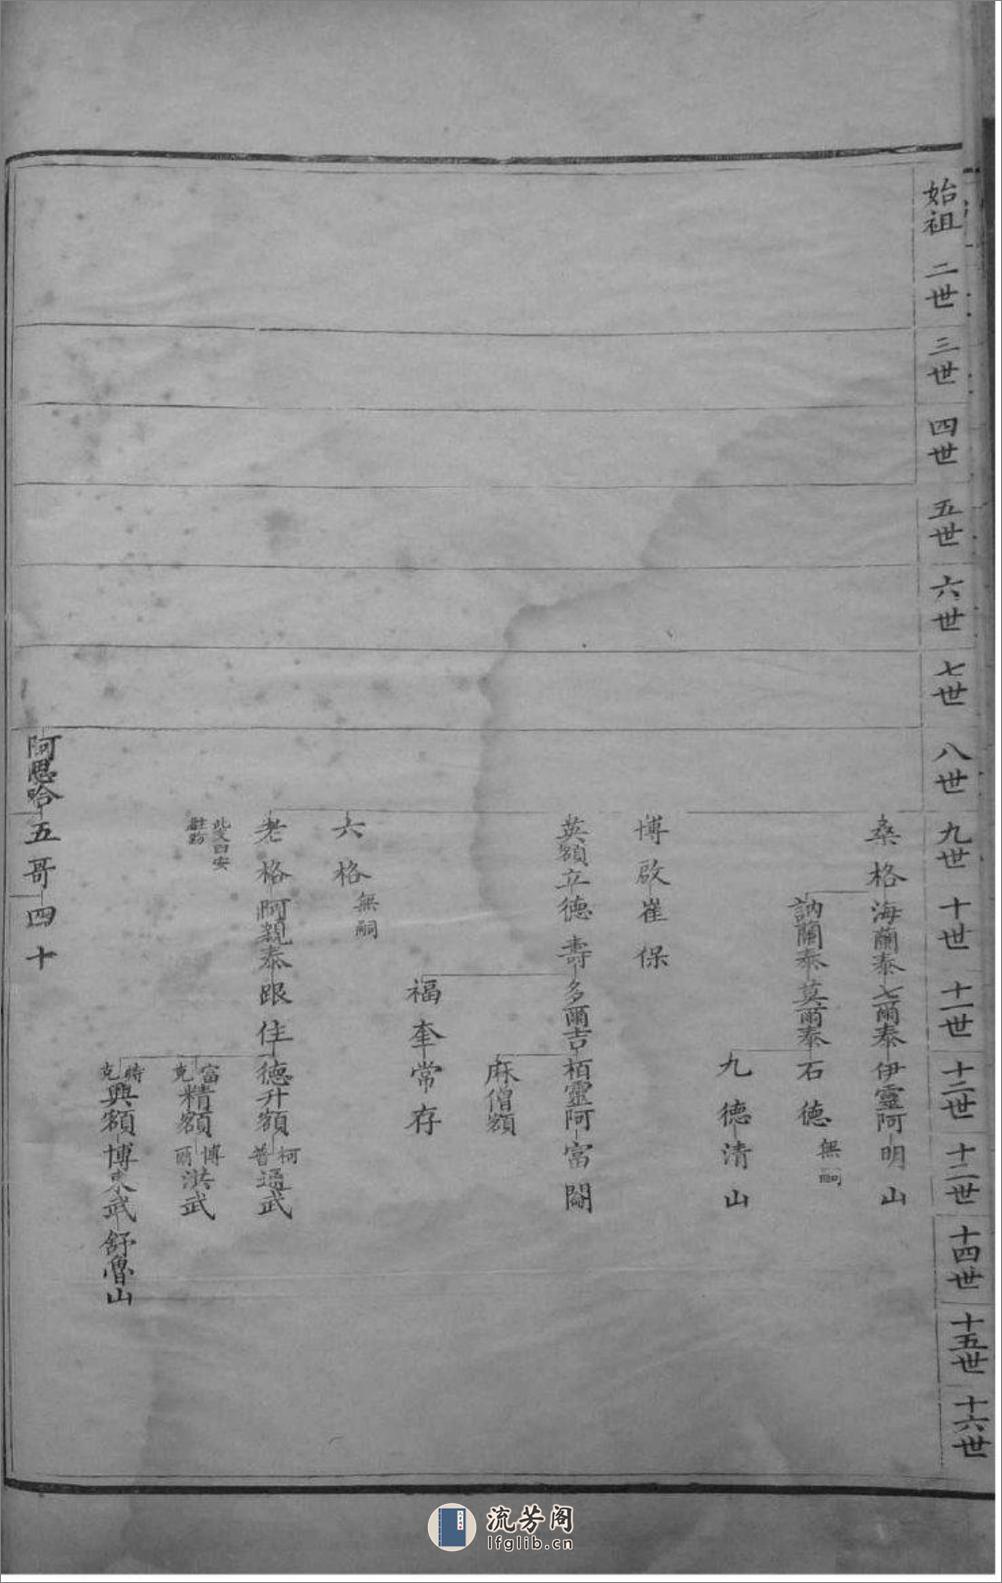 始祖
二世
三世
四世
五世
六世
七世
八世
九世
十世
十一世
十二世
十二世
十四世
十五世
十六世
桑格 海蘭泰 七爾泰 伊靈阿 明山
訥蘭泰 莫爾泰 石德 無嗣
九德 清山
博啟 崔保
英額立 德壽 多爾吉 栢靈阿 富閤
麻僧額
福奎 常存
六格 無嗣
老格 阿親泰 跟住 德升額 柯普通武
此支西安
駐防
富克精額 博爾洪武
特克興額 博東武 舒魯山
阿思哈 五哥 四十
流芳阁
lfglib.cn